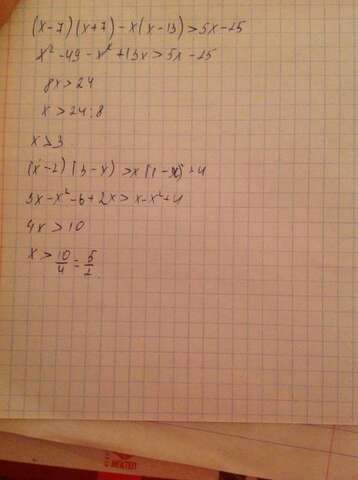 (x-7)(x+7)-x(x-13)>5x-25
x²-49-x²+13x>5x-25
8x>24
x>24:8
x>3
(x-2)(3-x)>x(1-x)+4
3x-x²-6+2x>x-x²+4
4x>10
x>10/4=5/2